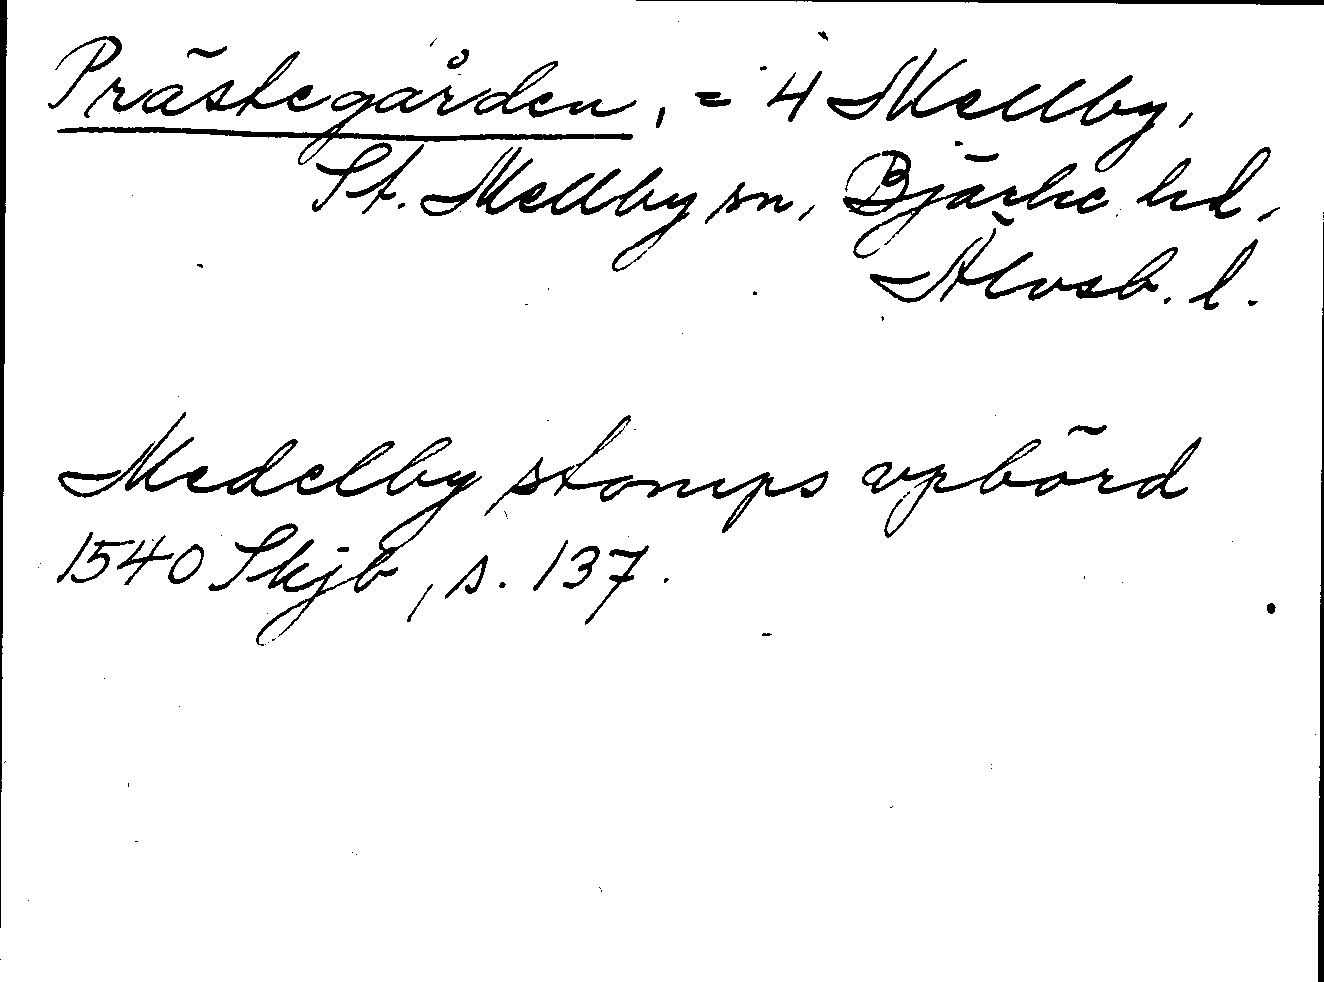 Prästegården, = 4 Mellby,
St. Mellby sn, Bjärke hd,
Älvsb. l.
Medelby stomps vpbörd
1540 Skjb, s. 137.